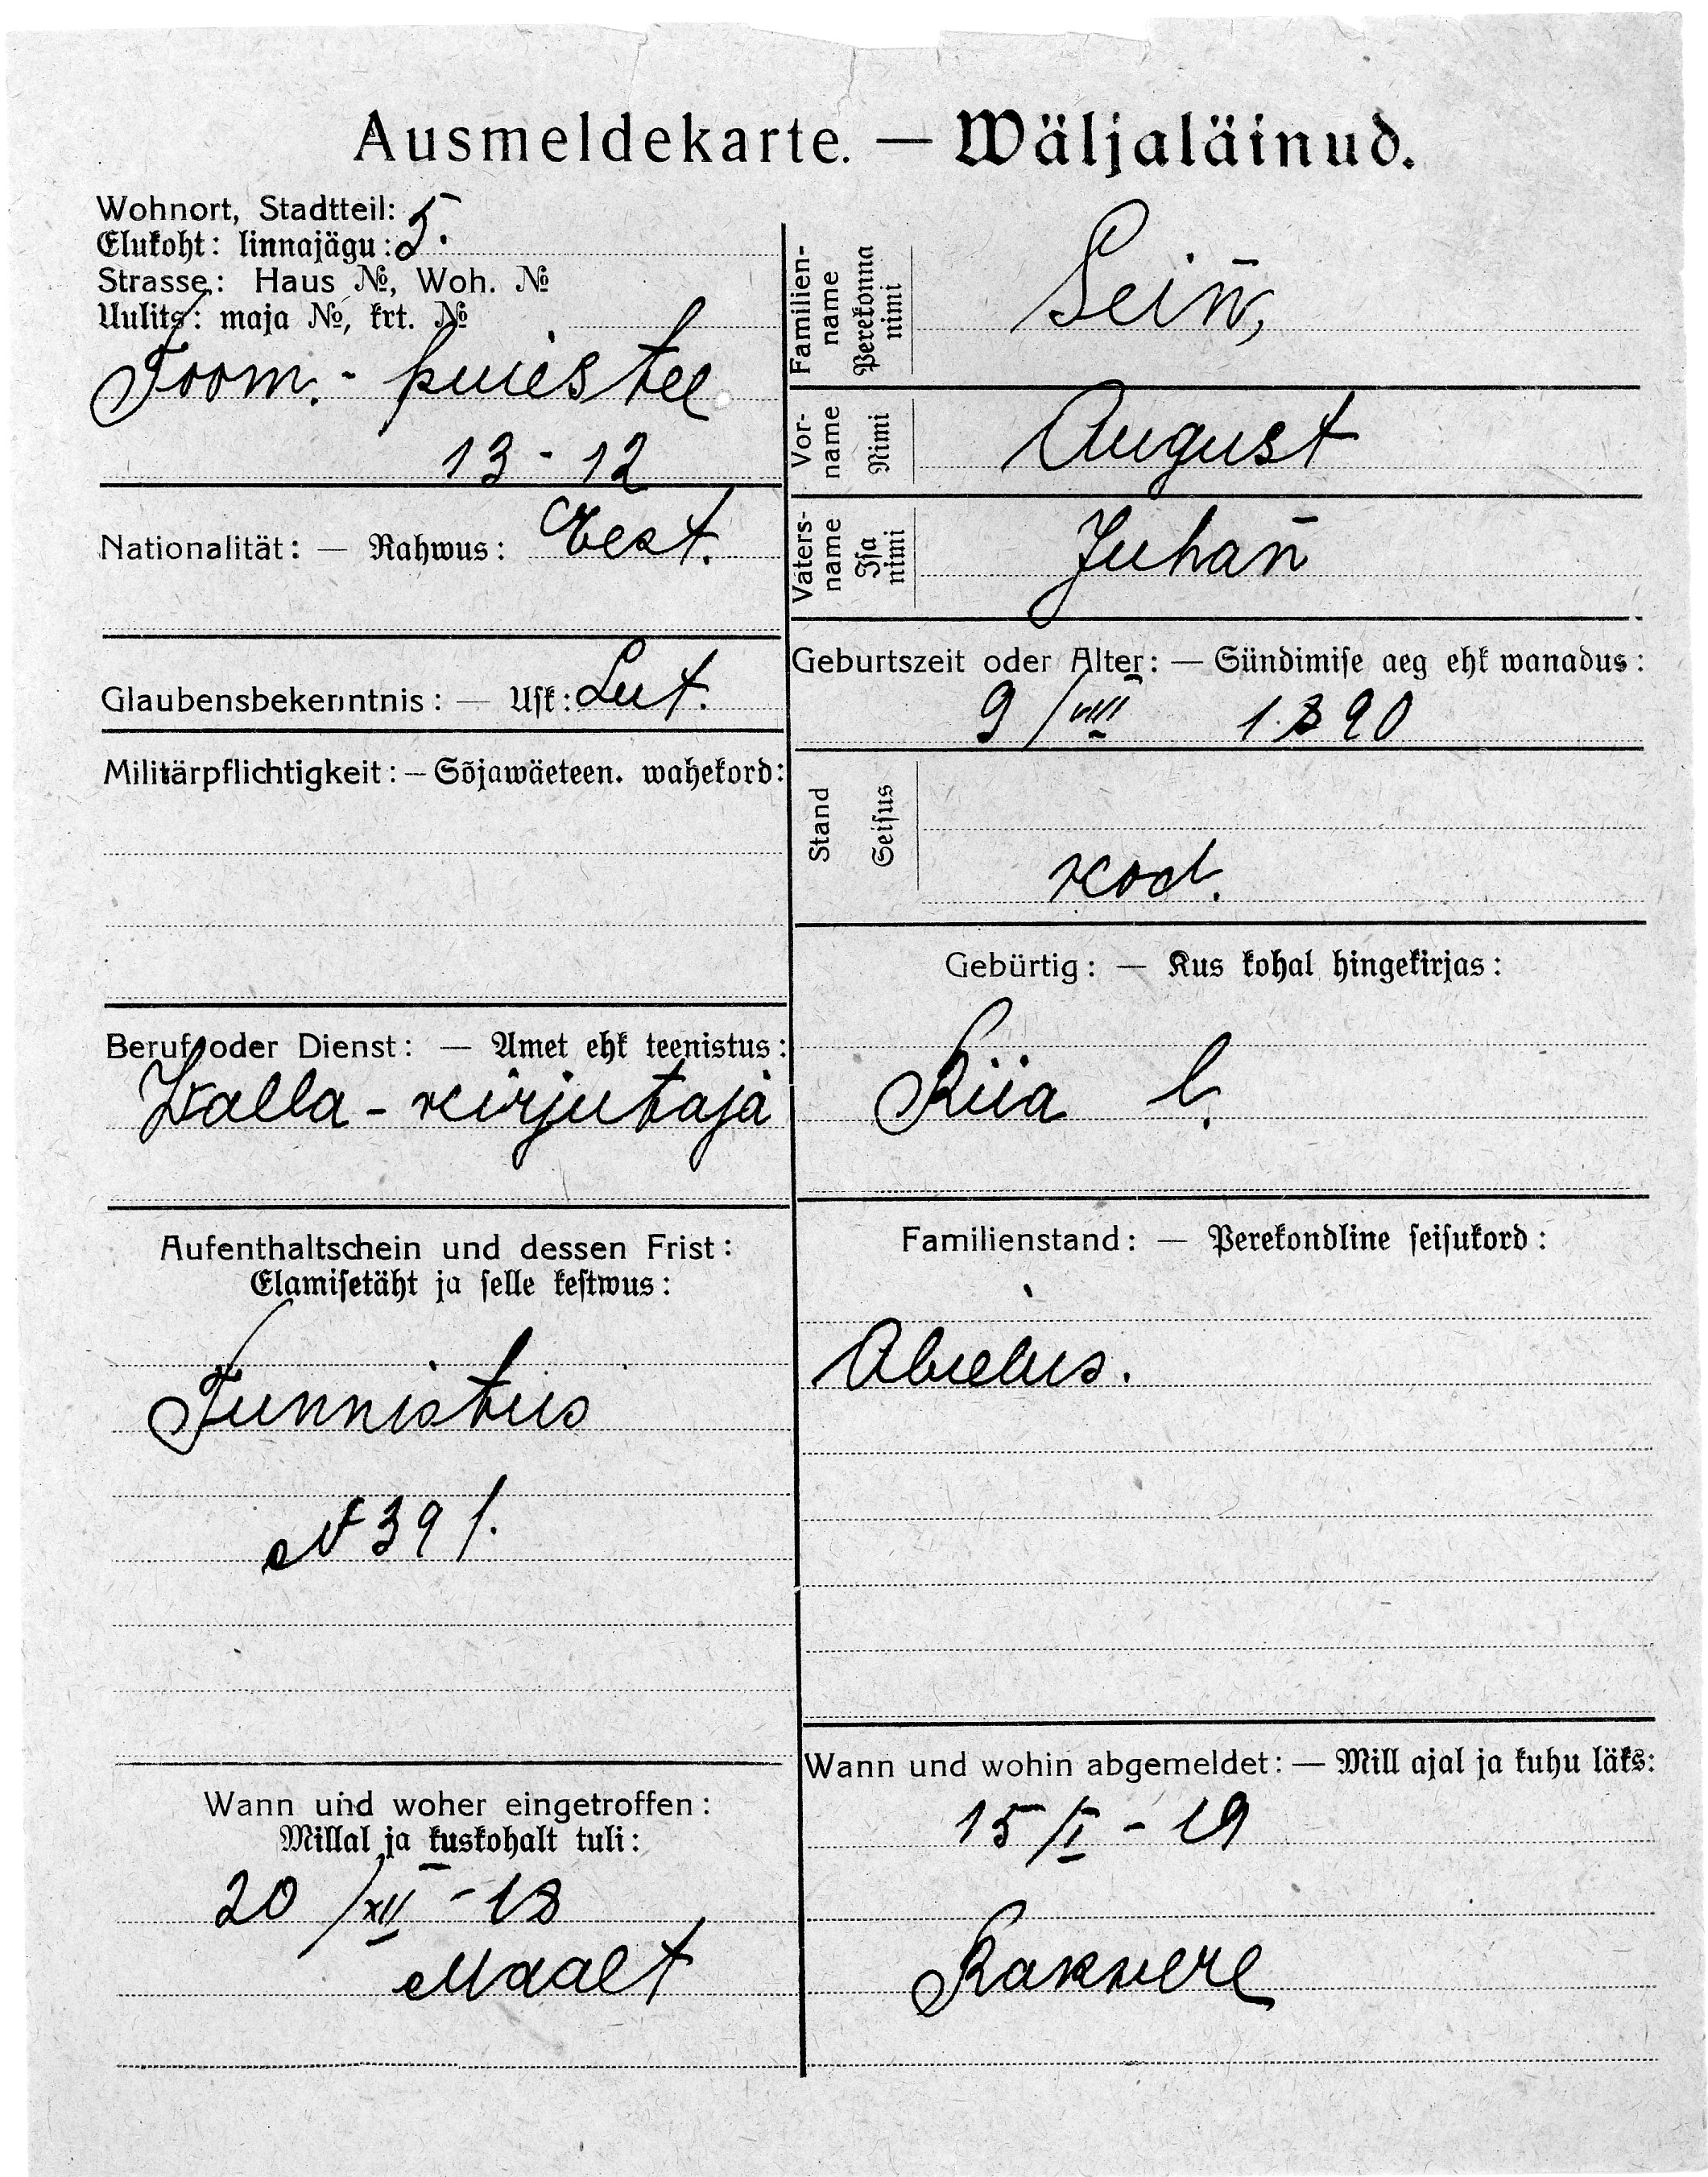 Ausmeldekarte. — Wäljaläinud.
Wohnort, Stadtteil: 5.
Elukoht: linnajägu:
Strasse: Haus №, Woh. №
Uulits: maja №, krt. №
Toom.- puiestee
13 - 12
Nationalität: — Rahwus: Eest.
Glaubensbekenntnis: — Usk: Lut.
Militärpflichtigkeit: — Sõjawäeteen. wahekord:
Beruf oder Dienst: — Amet ehk teenistus:
Walla-kirjutaja
Aufenthaltschein und dessen Frist:
Elamisetäht ja selle kestwus:
Tunnistus
№ 391.
Wann und woher eingetroffen:
Millal ja kuskohalt tuli:
20/XII - 18
Maalt
Familien-name Perekonna nimi Sein̄,
Vor-name Nimi August
Vaters-name Isa nimi Juhan̄
Geburtszeit oder Alter: — Sündimise aeg ehk wanadus:
9/VIII 1890
Stand Seisus
kod.
Gebürtig: — Kus kohal hingekirjas:
Riia l.
Familienstand: — Perekondline seisukord:
Abielus.
Wann und wohin abgemeldet: — Mill ajal ja kuhu läks:
15/I - 19
Rakvere